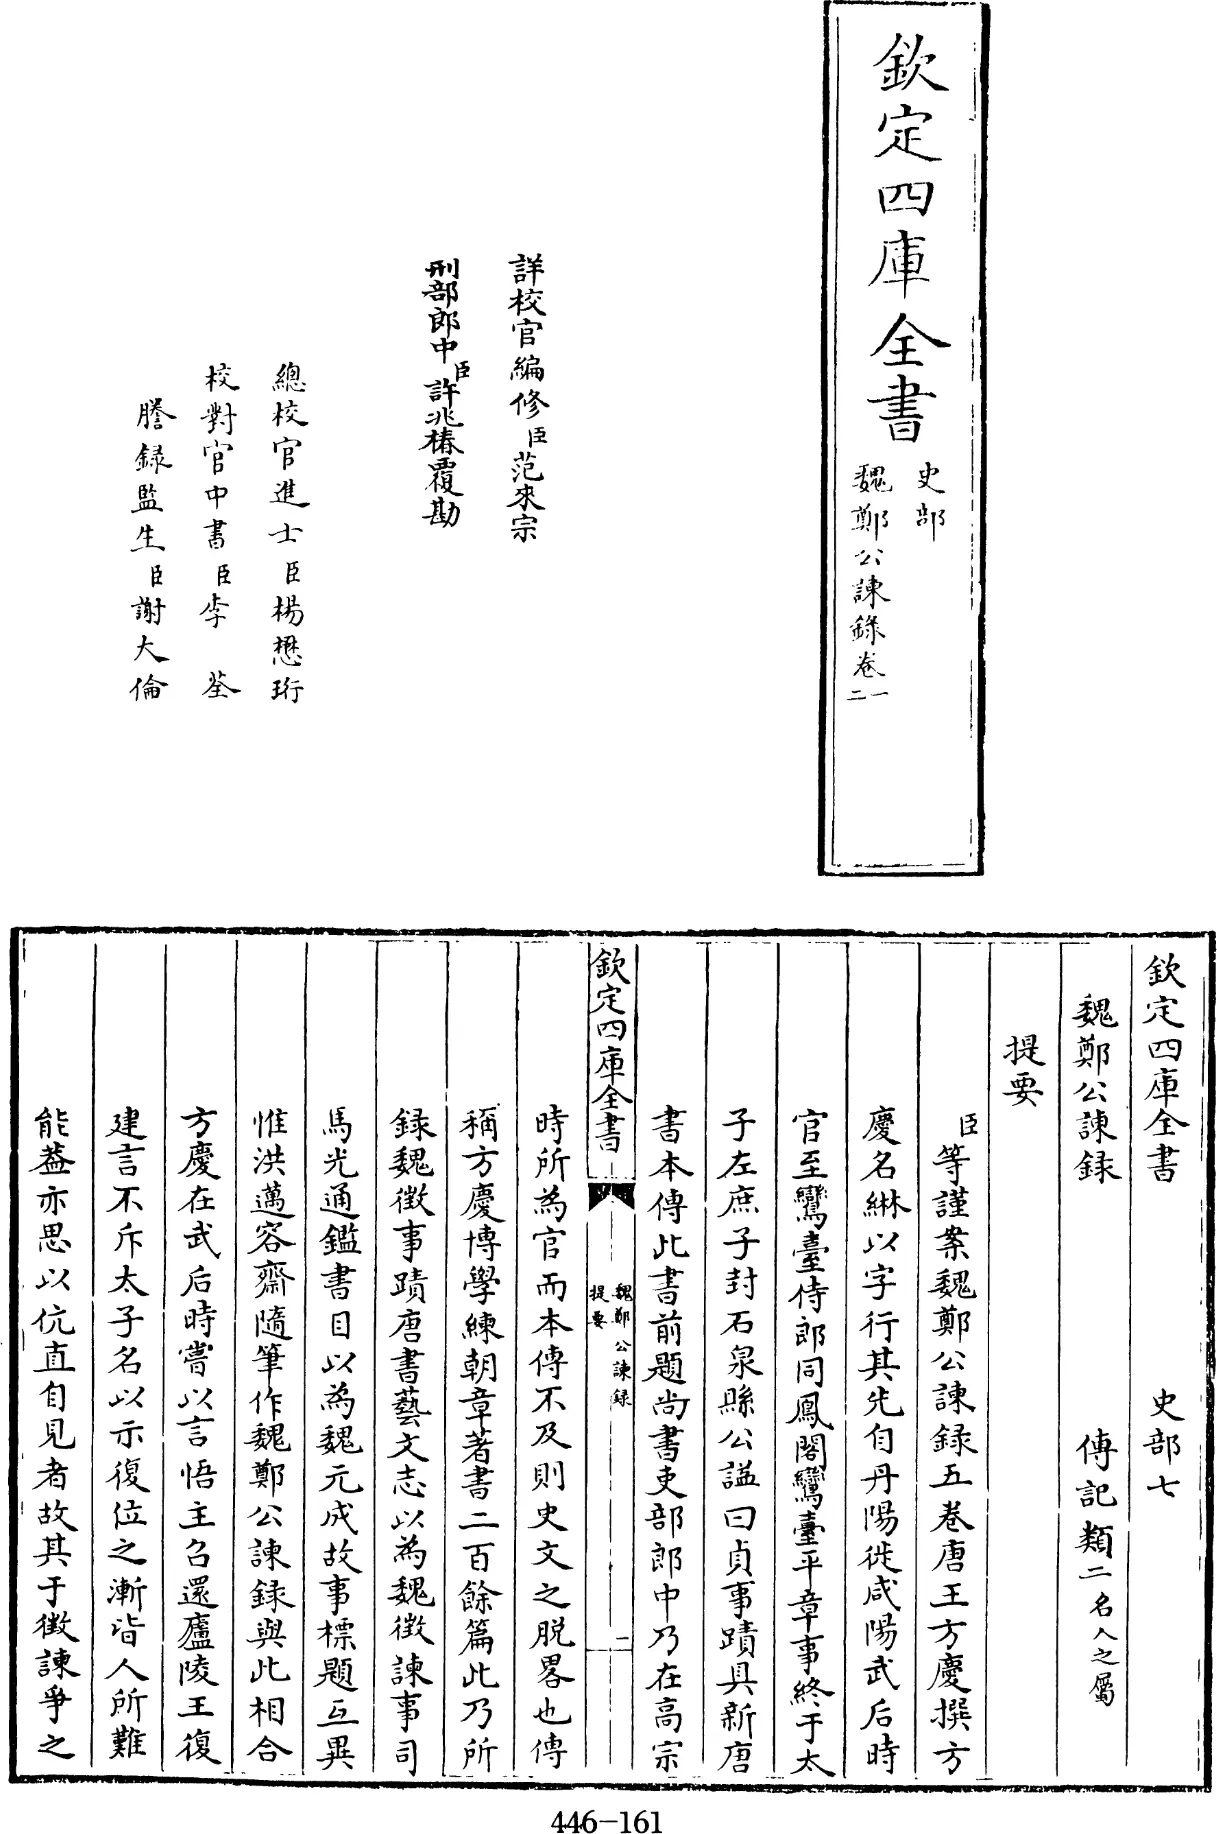 欽定四庫全書
史部
魏鄭公諫錄卷一二
詳校官編修臣范來宗
刑部郎中臣許兆椿覆勘
總校官進士臣楊懋珩
校對官中書臣李荃
謄錄監生臣謝大倫
欽定四庫全書 史部七
魏鄭公諫録 傳記類二名人之屬
提要
臣等謹案魏鄭公諫録五卷唐王方慶撰方
慶名綝以字行其先自丹陽徙咸陽武后時
官至鸞臺侍郎同鳳閣鸞臺平章事終于太
子左庶子封石泉縣公謚曰貞事蹟具新唐
書本傳此書前題尚書吏部郎中乃在高宗
欽定四庫全書
魏鄭公諫録
提要
二
時所為官而本傳不及則史文之脱畧也傳
稱方慶博學練朝章著書二百餘篇此乃所
録魏徵事蹟唐書藝文志以為魏徵諫事司
馬光通鑑書目以為魏元成故事標題互異
惟洪邁容齋隨筆作魏鄭公諫録與此相合
方慶在武后時嘗以言悟主召還廬陵王復
建言不斥太子名以示復位之漸皆人所難
能葢亦思以伉直自見者故其于徵諫爭之
446-161